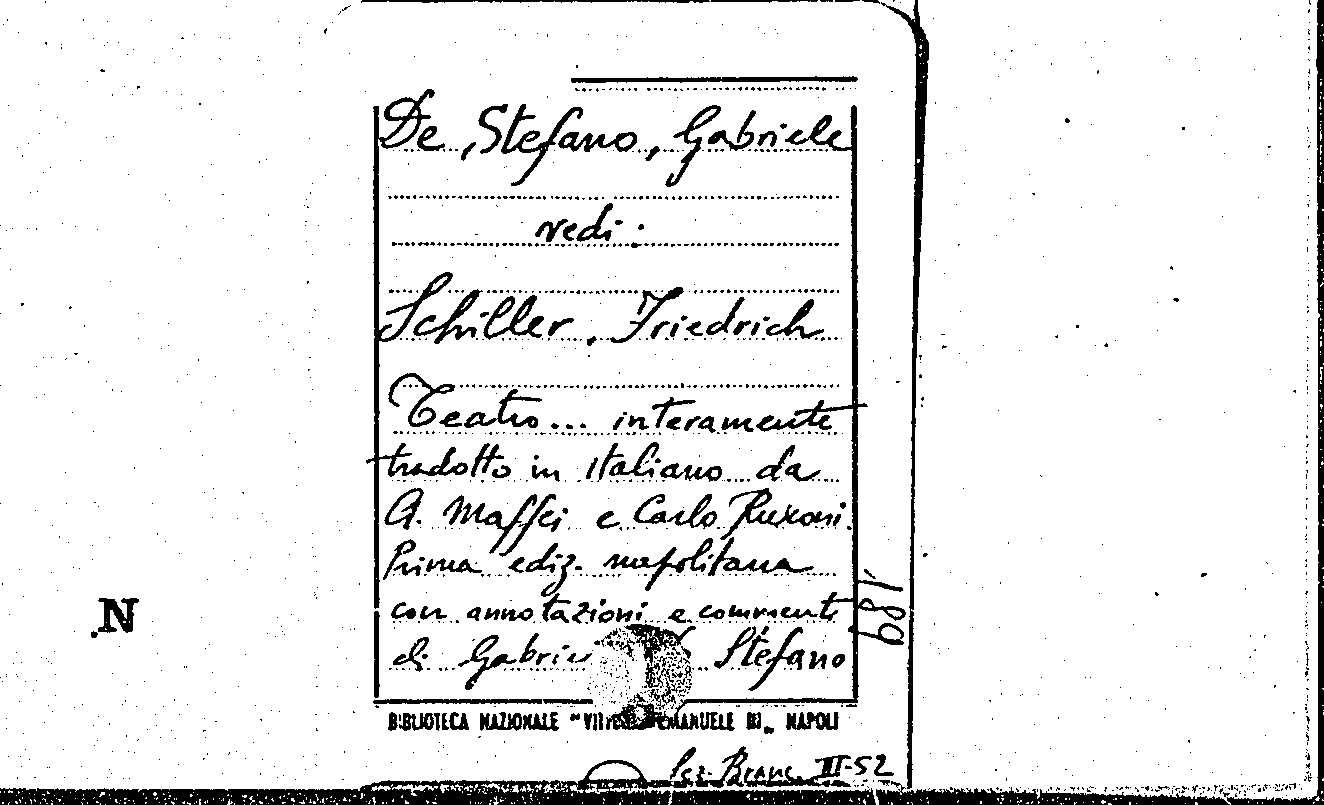 De Stefano, Gabriele
vedi:
Schiller, Friedrich
Teatro... interamente
tradotto in italiano da
A. Maffei e Carlo Rusconi.
Prima ediz. napolitana
con annotazioni e commenti
di Gabriele De Stefano
BIBLIOTECA NAZIONALE "VITTORIO EMANUELE III" NAPOLI
Sez. Branc. III-52
189
N